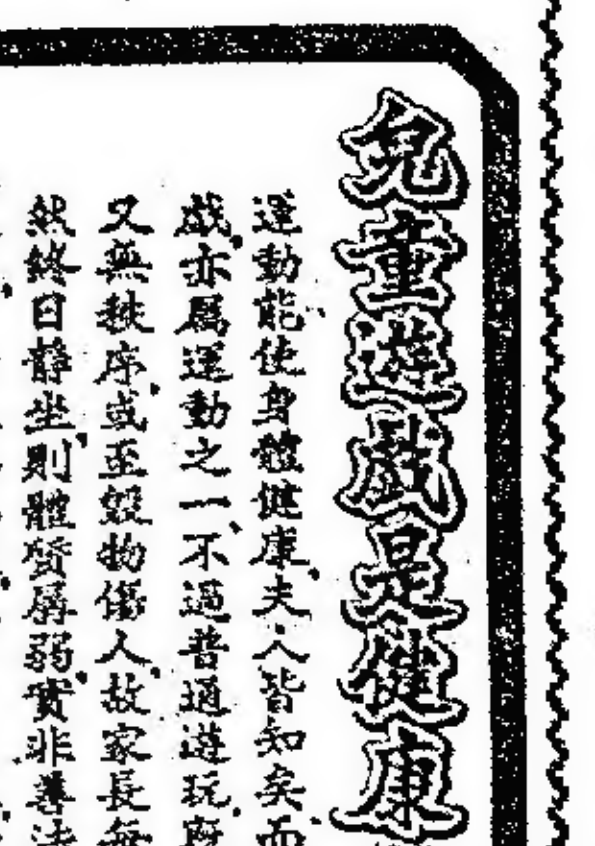 兒童遊戲是健康
運動能使身體健康、夫人皆知矣、而
戲、亦屬運動之一、不過普通遊玩、
又無秩序、或至毀物傷人、故家長每
然終日靜坐、則體質孱弱、實非善法